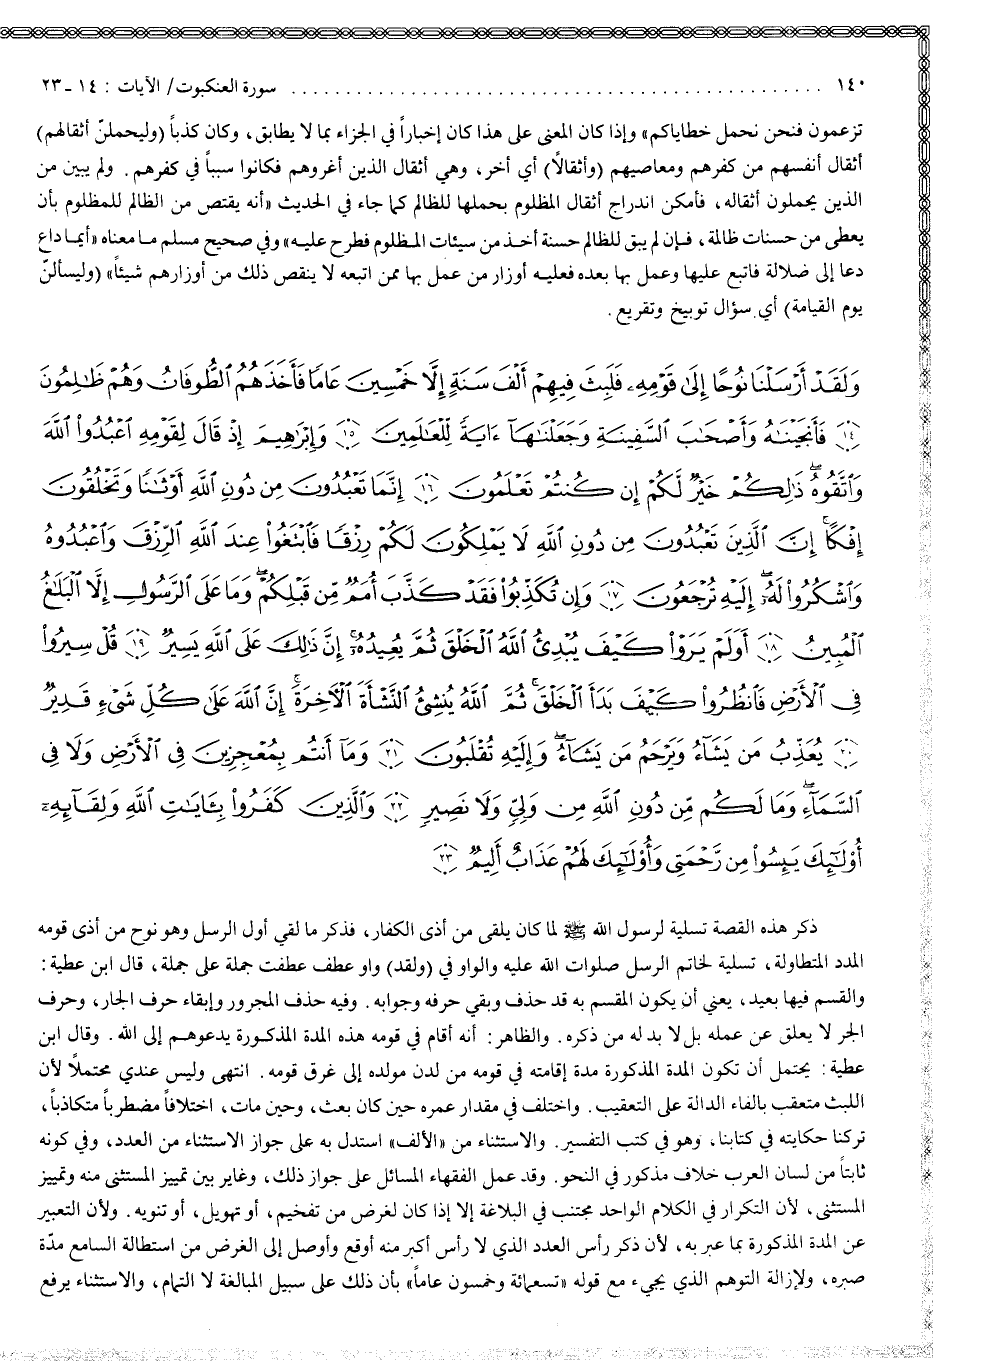 ١٤٠ ................................................ سورة العنكبوت/ الآيات : ١٤ ـ ٢٣
تزعمون فنحن نحمل خطاياكم» وإذا كان المعنى على هذا كان إخباراً في الجزاء بما لا يطابق، وكان كذباً (وليحملنّ أثقالهم)
أثقال أنفسهم من كفرهم ومعاصيهم (وأثقالًا) أي أخر، وهي أثقال الذين أغروهم فكانوا سبباً في كفرهم. ولم يبين من
الذين يحملون أثقاله، فأمكن اندراج أثقال المظلوم بحملها للظالم كما جاء في الحديث «أنه يقتص من الظالم للمظلوم بأن
يعطى من حسنات ظالمة، فإن لم يبق للظالم حسنة أخذ من سيئات المظلوم فطرح عليه» وفي صحيح مسلم ما معناه «أيما داع
دعا إلى ضلالة فاتبع عليها وعمل بها بعده فعليه أوزار من عمل بها ممن اتبعه لا ينقص ذلك من أوزارهم شيئاً» (وليسألنّ
يوم القيامة) أي سؤال توبيخ وتقريع.
وَلَقَدْ أَرْسَلْنَا نُوحًا إِلَىٰ قَوْمِهِۦ فَلَبِثَ فِيهِمْ أَلْفَ سَنَةٍ إِلَّا خَمْسِينَ عَامًا فَأَخَذَهُمُ ٱلطُّوفَانُ وَهُمْ ظَٰلِمُونَ
١٤ فَأَنجَيْنَٰهُ وَأَصْحَٰبَ ٱلسَّفِينَةِ وَجَعَلْنَٰهَآ ءَايَةً لِّلْعَٰلَمِينَ ١٥ وَإِبْرَٰهِيمَ إِذْ قَالَ لِقَوْمِهِ ٱعْبُدُوا۟ ٱللَّهَ
وَٱتَّقُوهُ ۖ ذَٰلِكُمْ خَيْرٌ لَّكُمْ إِن كُنتُمْ تَعْلَمُونَ ١٦ إِنَّمَا تَعْبُدُونَ مِن دُونِ ٱللَّهِ أَوْثَٰنًا وَتَخْلُقُونَ
إِفْكًا ۚ إِنَّ ٱلَّذِينَ تَعْبُدُونَ مِن دُونِ ٱللَّهِ لَا يَمْلِكُونَ لَكُمْ رِزْقًا فَٱبْتَغُوا۟ عِندَ ٱللَّهِ ٱلرِّزْقَ وَٱعْبُدُوهُ
وَٱشْكُرُوا۟ لَهُۥٓ ۖ إِلَيْهِ تُرْجَعُونَ ١٧ وَإِن تُكَذِّبُوا۟ فَقَدْ كَذَّبَ أُمَمٌ مِّن قَبْلِكُمْ ۖ وَمَا عَلَى ٱلرَّسُولِ إِلَّا ٱلْبَلَٰغُ
ٱلْمُبِينُ ١٨ أَوَلَمْ يَرَوْا۟ كَيْفَ يُبْدِئُ ٱللَّهُ ٱلْخَلْقَ ثُمَّ يُعِيدُهُۥٓ ۚ إِنَّ ذَٰلِكَ عَلَى ٱللَّهِ يَسِيرٌ ١٩ قُلْ سِيرُوا۟
فِى ٱلْأَرْضِ فَٱنظُرُوا۟ كَيْفَ بَدَأَ ٱلْخَلْقَ ۚ ثُمَّ ٱللَّهُ يُنشِئُ ٱلنَّشْأَةَ ٱلْـَٔاخِرَةَ ۚ إِنَّ ٱللَّهَ عَلَىٰ كُلِّ شَىْءٍ قَدِيرٌ
٢٠ يُعَذِّبُ مَن يَشَآءُ وَيَرْحَمُ مَن يَشَآءُ ۖ وَإِلَيْهِ تُقْلَبُونَ ٢١ وَمَآ أَنتُم بِمُعْجِزِينَ فِى ٱلْأَرْضِ وَلَا فِى
ٱلسَّمَآءِ ۖ وَمَا لَكُم مِّن دُونِ ٱللَّهِ مِن وَلِىٍّ وَلَا نَصِيرٍ ٢٢ وَٱلَّذِينَ كَفَرُوا۟ بِـَٔايَٰتِ ٱللَّهِ وَلِقَآئِهِۦٓ
أُو۟لَٰٓئِكَ يَئِسُوا۟ مِن رَّحْمَتِى وَأُو۟لَٰٓئِكَ لَهُمْ عَذَابٌ أَلِيمٌ ٢٣
ذكر هذه القصة تسلية لرسول الله ﷺ لما كان يلقى من أذى الكفار، فذكر ما لقي أول الرسل وهو نوح من أذى قومه
المدد المتطاولة، تسلية لخاتم الرسل صلوات الله عليه والواو في (ولقد) واو عطف عطفت جملة على جملة، قال ابن عطية:
والقسم فيها بعيد، يعني أن يكون المقسم به قد حذف وبقي حرفه وجوابه. وفيه حذف المجرور وإبقاء حرف الجار، وحرف
الجر لا يعلق عن عمله بل لا بد له من ذكره. والظاهر: أنه أقام في قومه هذه المدة المذكورة يدعوهم إلى الله. وقال ابن
عطية: يحتمل أن تكون المدة المذكورة مدة إقامته في قومه من لدن مولده إلى غرق قومه. انتهى وليس عندي محتملًا لأن
اللبث متعقب بالفاء الدالة على التعقيب. واختلف في مقدار عمره حين كان بعث، وحين مات، اختلافاً مضطرباً متكاذباً،
تركنا حكايته في كتابنا، وهو في كتب التفسير. والاستثناء من «الألف» استدل به على جواز الاستثناء من العدد، وفي كونه
ثابتاً من لسان العرب خلاف مذكور في النحو. وقد عمل الفقهاء المسائل على جواز ذلك، وغاير بين تمييز المستثنى منه وتمييز
المستثنى، لأن التكرار في الكلام الواحد مجتنب في البلاغة إلا إذا كان لغرض من تفخيم، أو تهويل، أو تنويه. ولأن التعبير
عن المدة المذكورة بما عبر به، لأن ذكر رأس العدد الذي لا رأس أكبر منه أوقع وأوصل إلى الغرض من استطالة السامع مدّة
صبره، ولإزالة التوهم الذي يجيء مع قوله «تسعمائة وخمسون عاماً» بأن ذلك على سبيل المبالغة لا التمام، والاستثناء يرفع